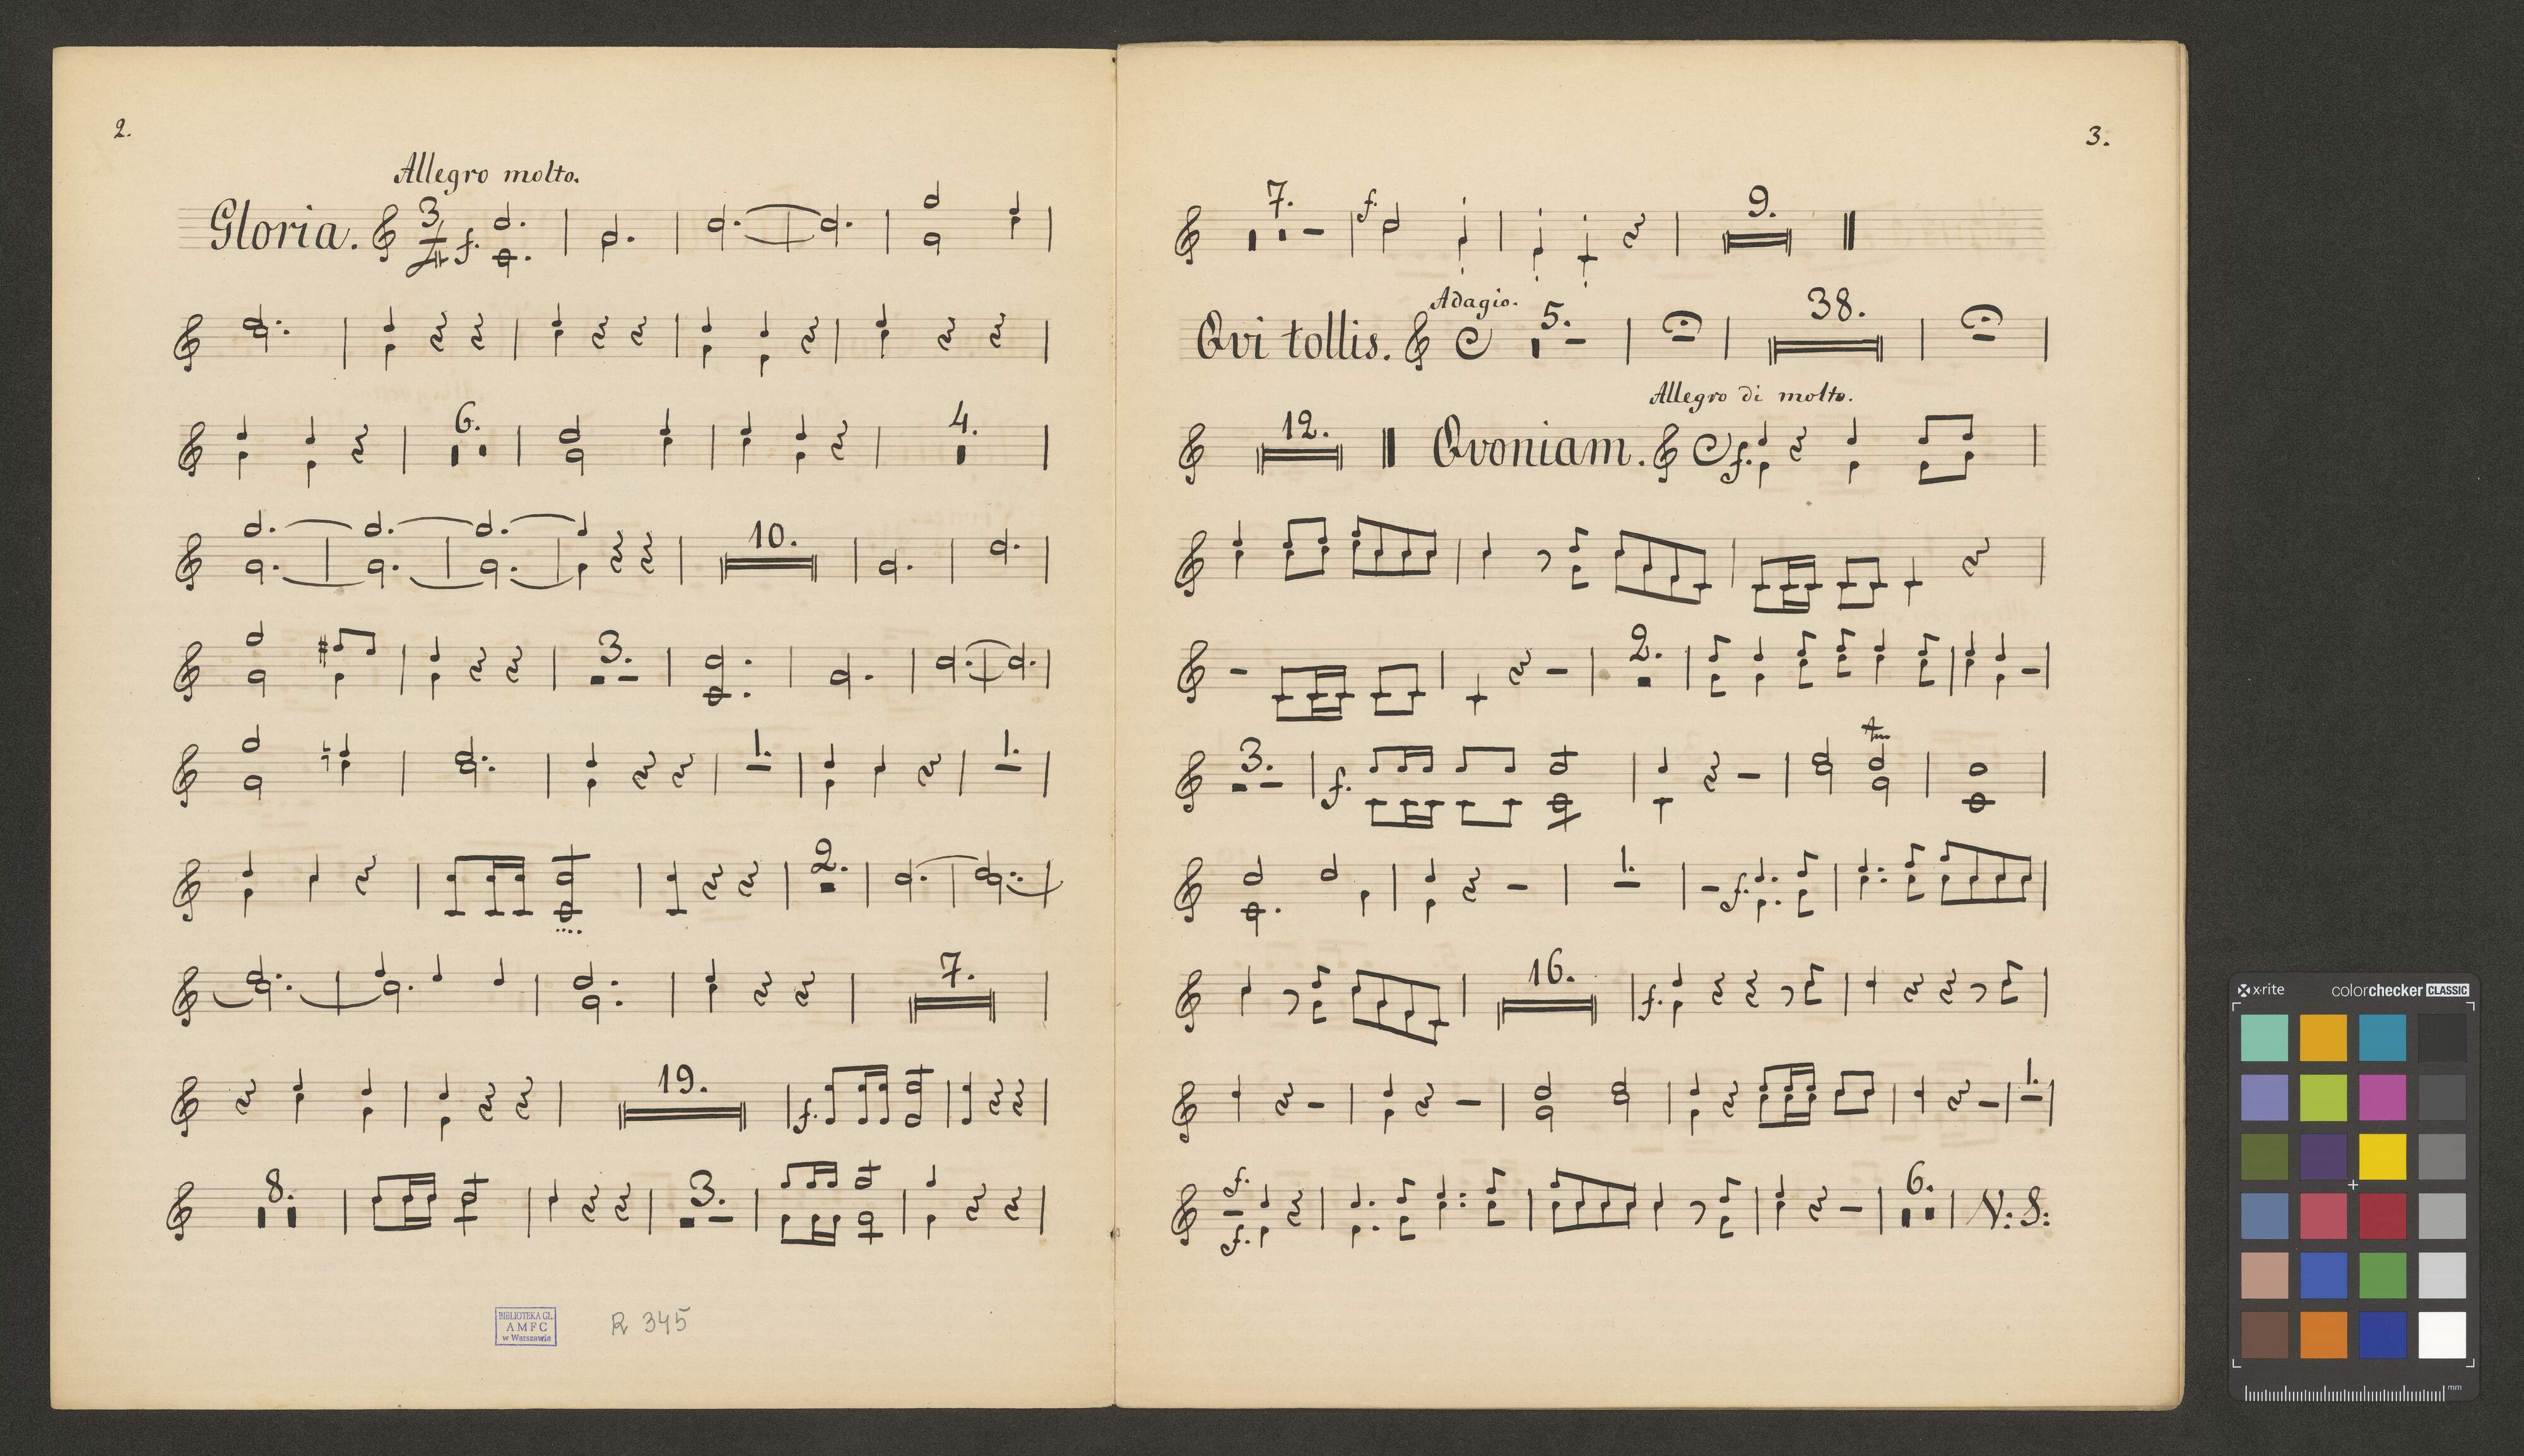 2.
Allegro molto.
Gloria. 3/4 f.
6. 4.
10.
3.
1. 1.
2.
7.
19. f.
8. 3.
BIBLIOTEKA GŁ.
AMFC
w Warszawie
R 345
3.
7. f. 9.
Adagio.
Qvi tollis. C 5. 38.
Allegro di molto.
12. Qvoniam. C f.
2.
3. f.
1. f.
16. f.
1.
f. 6. V: S:
f.
x-rite colorchecker CLASSIC
mm